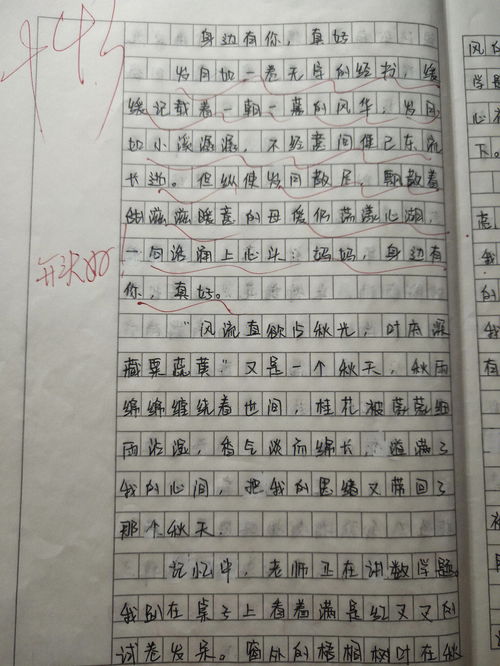 身边有你，真好
岁月如一卷无字的经抄，缓
缓记载着一朝一暮的风华，岁月
如小溪潺潺，不经意间便已东流
长逝。但纵使岁月散尽，飘散着
丝滋滋暖意的母爱仍荡漾心湖，
一句话涌上心头：妈妈，身边有
你，真好。
"风流直欲占秋光，叶底深
藏粟蕊黄"又是一个秋天，秋雨
绵绵缠绕着世间，桂花被蒙蒙细
雨沾湿，香气淡而绵长，溢满了
我的心间，把我的思绪又带回了
那个秋天.
记忆中，老师正在讲数学题。
我趴在桌子上看着满是红叉叉的
试卷发呆。窗外的梧桐树叶在秋
开头好
风
学是
心
下。
我
的
我
有